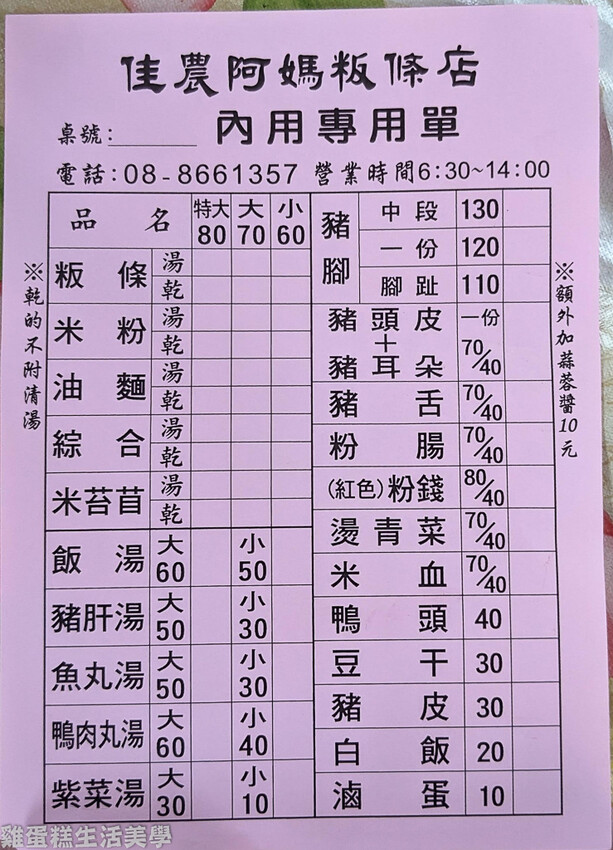 佳農阿媽粄條店
桌號:______ 內用專用單
電話:08-8661357 營業時間6:30~14:00
※乾的不附清湯
品名 特大80 大70 小60
粄條 湯
乾
米粉 湯
乾
油麵 湯
乾
綜合 湯
乾
米苔苜 湯
乾
飯湯 大60 小50
豬肝湯 大50 小30
魚丸湯 大50 小30
鴨肉丸湯 大60 小40
紫菜湯 大30 小10
豬腳 中段 130
一份 120
腳趾 110
豬頭皮+豬耳朵 一份 70/40
豬舌 70/40
粉腸 70/40
(紅色)粉錢 80/40
燙青菜 70/40
米血 70/40
鴨頭 40
豆干 30
豬皮 30
白飯 20
滷蛋 10
※額外加蒜蓉醬10元
雞蛋糕生活美學